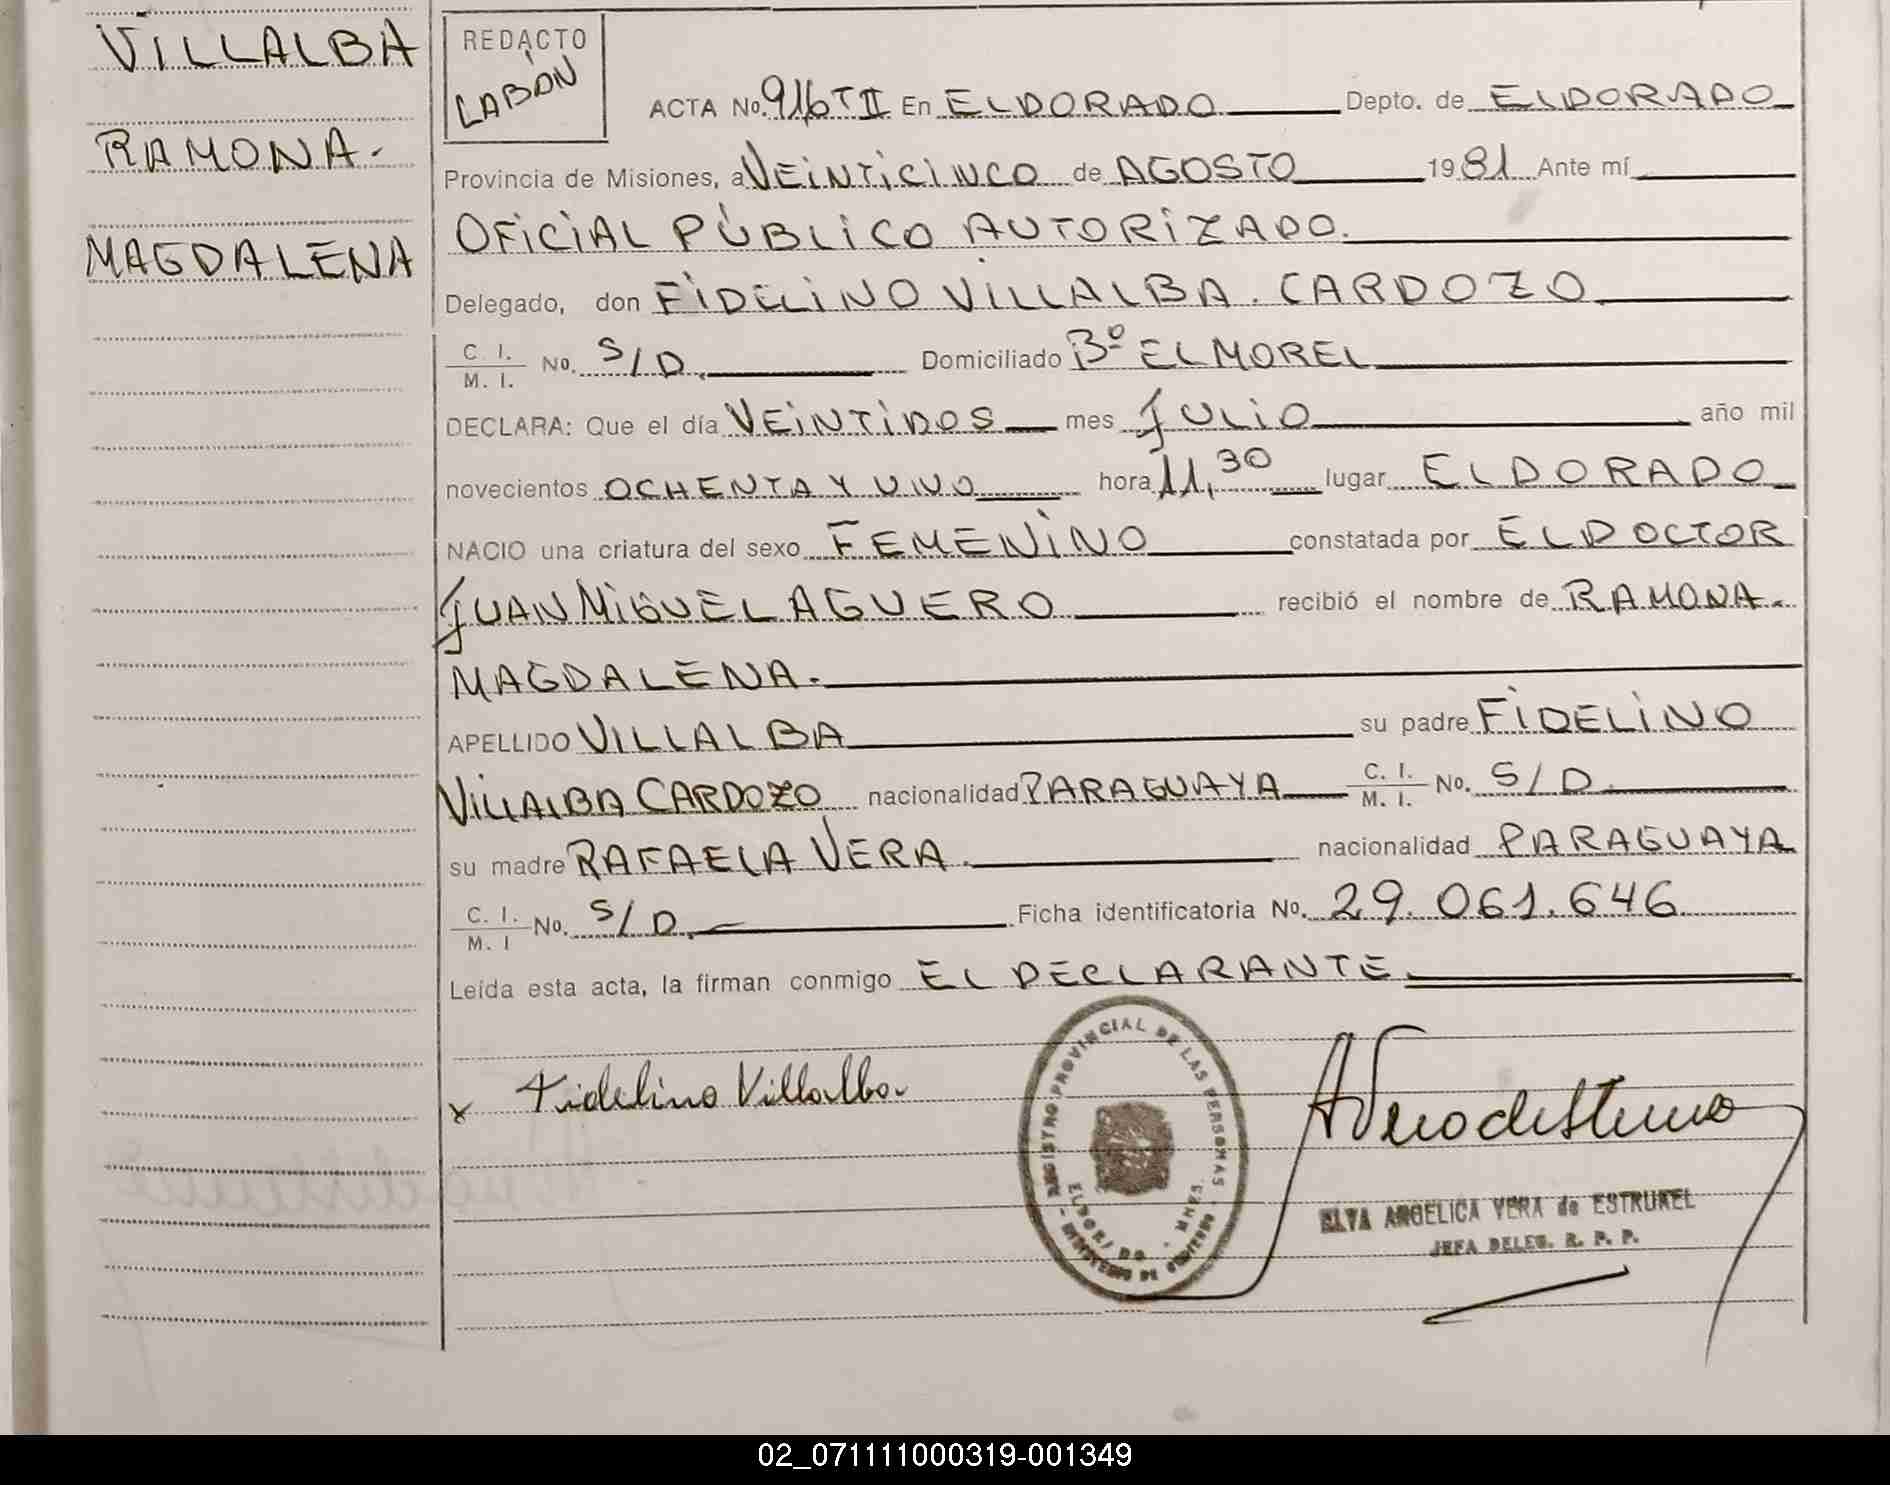 VILLALBA
RAMONA.
MAGDALENA
REDACTO
LABON
ACTA No. 916 T II En ELDORADO Depto. de ELDORADO
Provincia de Misiones, a VEINTICINCO de AGOSTO 1981 Ante mí
OFICIAL PÚBLICO AUTORIZADO.
Delegado, don FIDELINO VILLALBA. CARDOZO
C. I. / M. I. No. S/D. Domiciliado Bº EL MOREL
DECLARA: Que el día VEINTIDOS mes JULIO año mil
novecientos OCHENTA Y UNO hora 11,30 lugar ELDORADO
NACIO una criatura del sexo FEMENINO constatada por EL DOCTOR
JUAN MIGUEL AGUERO recibió el nombre de RAMONA.
MAGDALENA.
APELLIDO VILLALBA su padre FIDELINO
VILLALBA CARDOZO nacionalidad PARAGUAYA C. I. / M. I. No. S/D.
su madre RAFAELA VERA. nacionalidad PARAGUAYA
C. I. / M. I No. S/D. Ficha identificatoria No. 29.061.646
Leída esta acta, la firman conmigo EL DECLARANTE.
x Fidelino Villalba
REGISTRO PROVINCIAL DE LAS PERSONAS
MINISTERIO DE GOBIERNO
ELDORADO - MNES.
ELVA ANGELICA VERA de ESTRUMEL
JEFA DELEG. R. P. P.
02_071111000319-001349